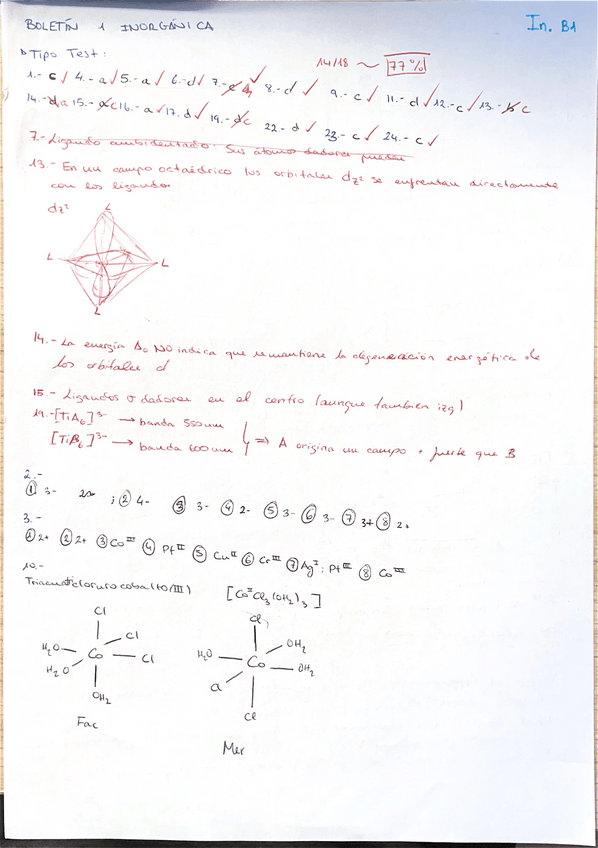 BOLETÍN 1 INORGÁNICA
In. B1
Tipo Test:
14/18 ~ 77%
1.- c ✓ 4.- a ✓ 5.- a ✓ 6.- d ✓ 7.- ✓ 8.- d ✓ 9.- c ✓ 11.- d ✓ 12.- c ✓ 13.- b c
14.- d a 15.- c 16.- a ✓ 17. d ✓ 19.- c 22.- d ✓ 23.- c ✓ 24.- c ✓
7.- Ligando ambidentado: Sus átomo dadores pueden
13.- En un campo octaédrico los orbitales dz² se enfrentan directamente
con los ligandos
dz²
L
L L
L
14.- La energía Δo NO indica que se mantiene la degeneración energética de
los orbitales d
15.- Ligandos σ dadores en el centro (aunque también izq)
19.- [TiA6]³⁻ → banda 550 nm
[TiB6]³⁻ → banda 600 nm
⇒ A origina un campo + fuerte que B
2.-
① 3- ; ② 4- ③ 3- ④ 2- ⑤ 3- ⑥ 3- ⑦ 3+ ⑧ 2+
3.-
① 2+ ② 2+ ③ Co III ④ Pt II ⑤ Cu II ⑥ Cr III ⑦ Ag I; Pt III ⑧ Co III
10.-
[Co III Cl3 (OH2)3]
Cl
Cl
H2O Co Cl
H2O
OH2
Fac
Cl
OH2
H2O Co OH2
Cl
Cl
Mer